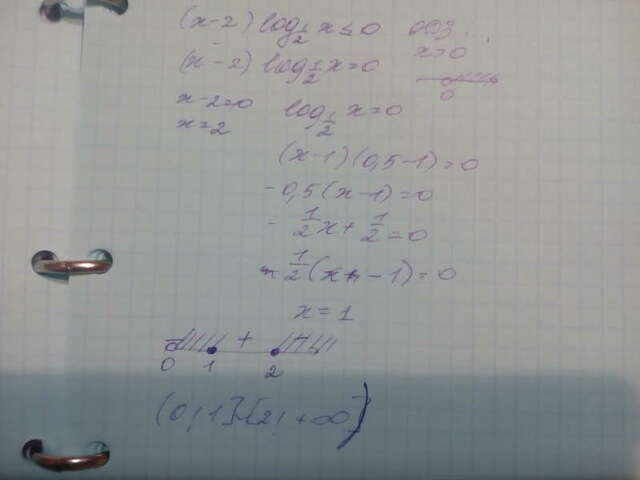 (x-2) log_{1/2} x ≤ 0 ОДЗ
(x-2) log_{1/2} x = 0 x>0
0
x-2=0 log_{1/2} x = 0
x=2
(x-1)(0,5-1)=0
-0,5(x-1)=0
-1/2 x + 1/2 = 0
1/2 (x - 1) = 0
x = 1
+
0 1 2
(0,1] [2, +∞)